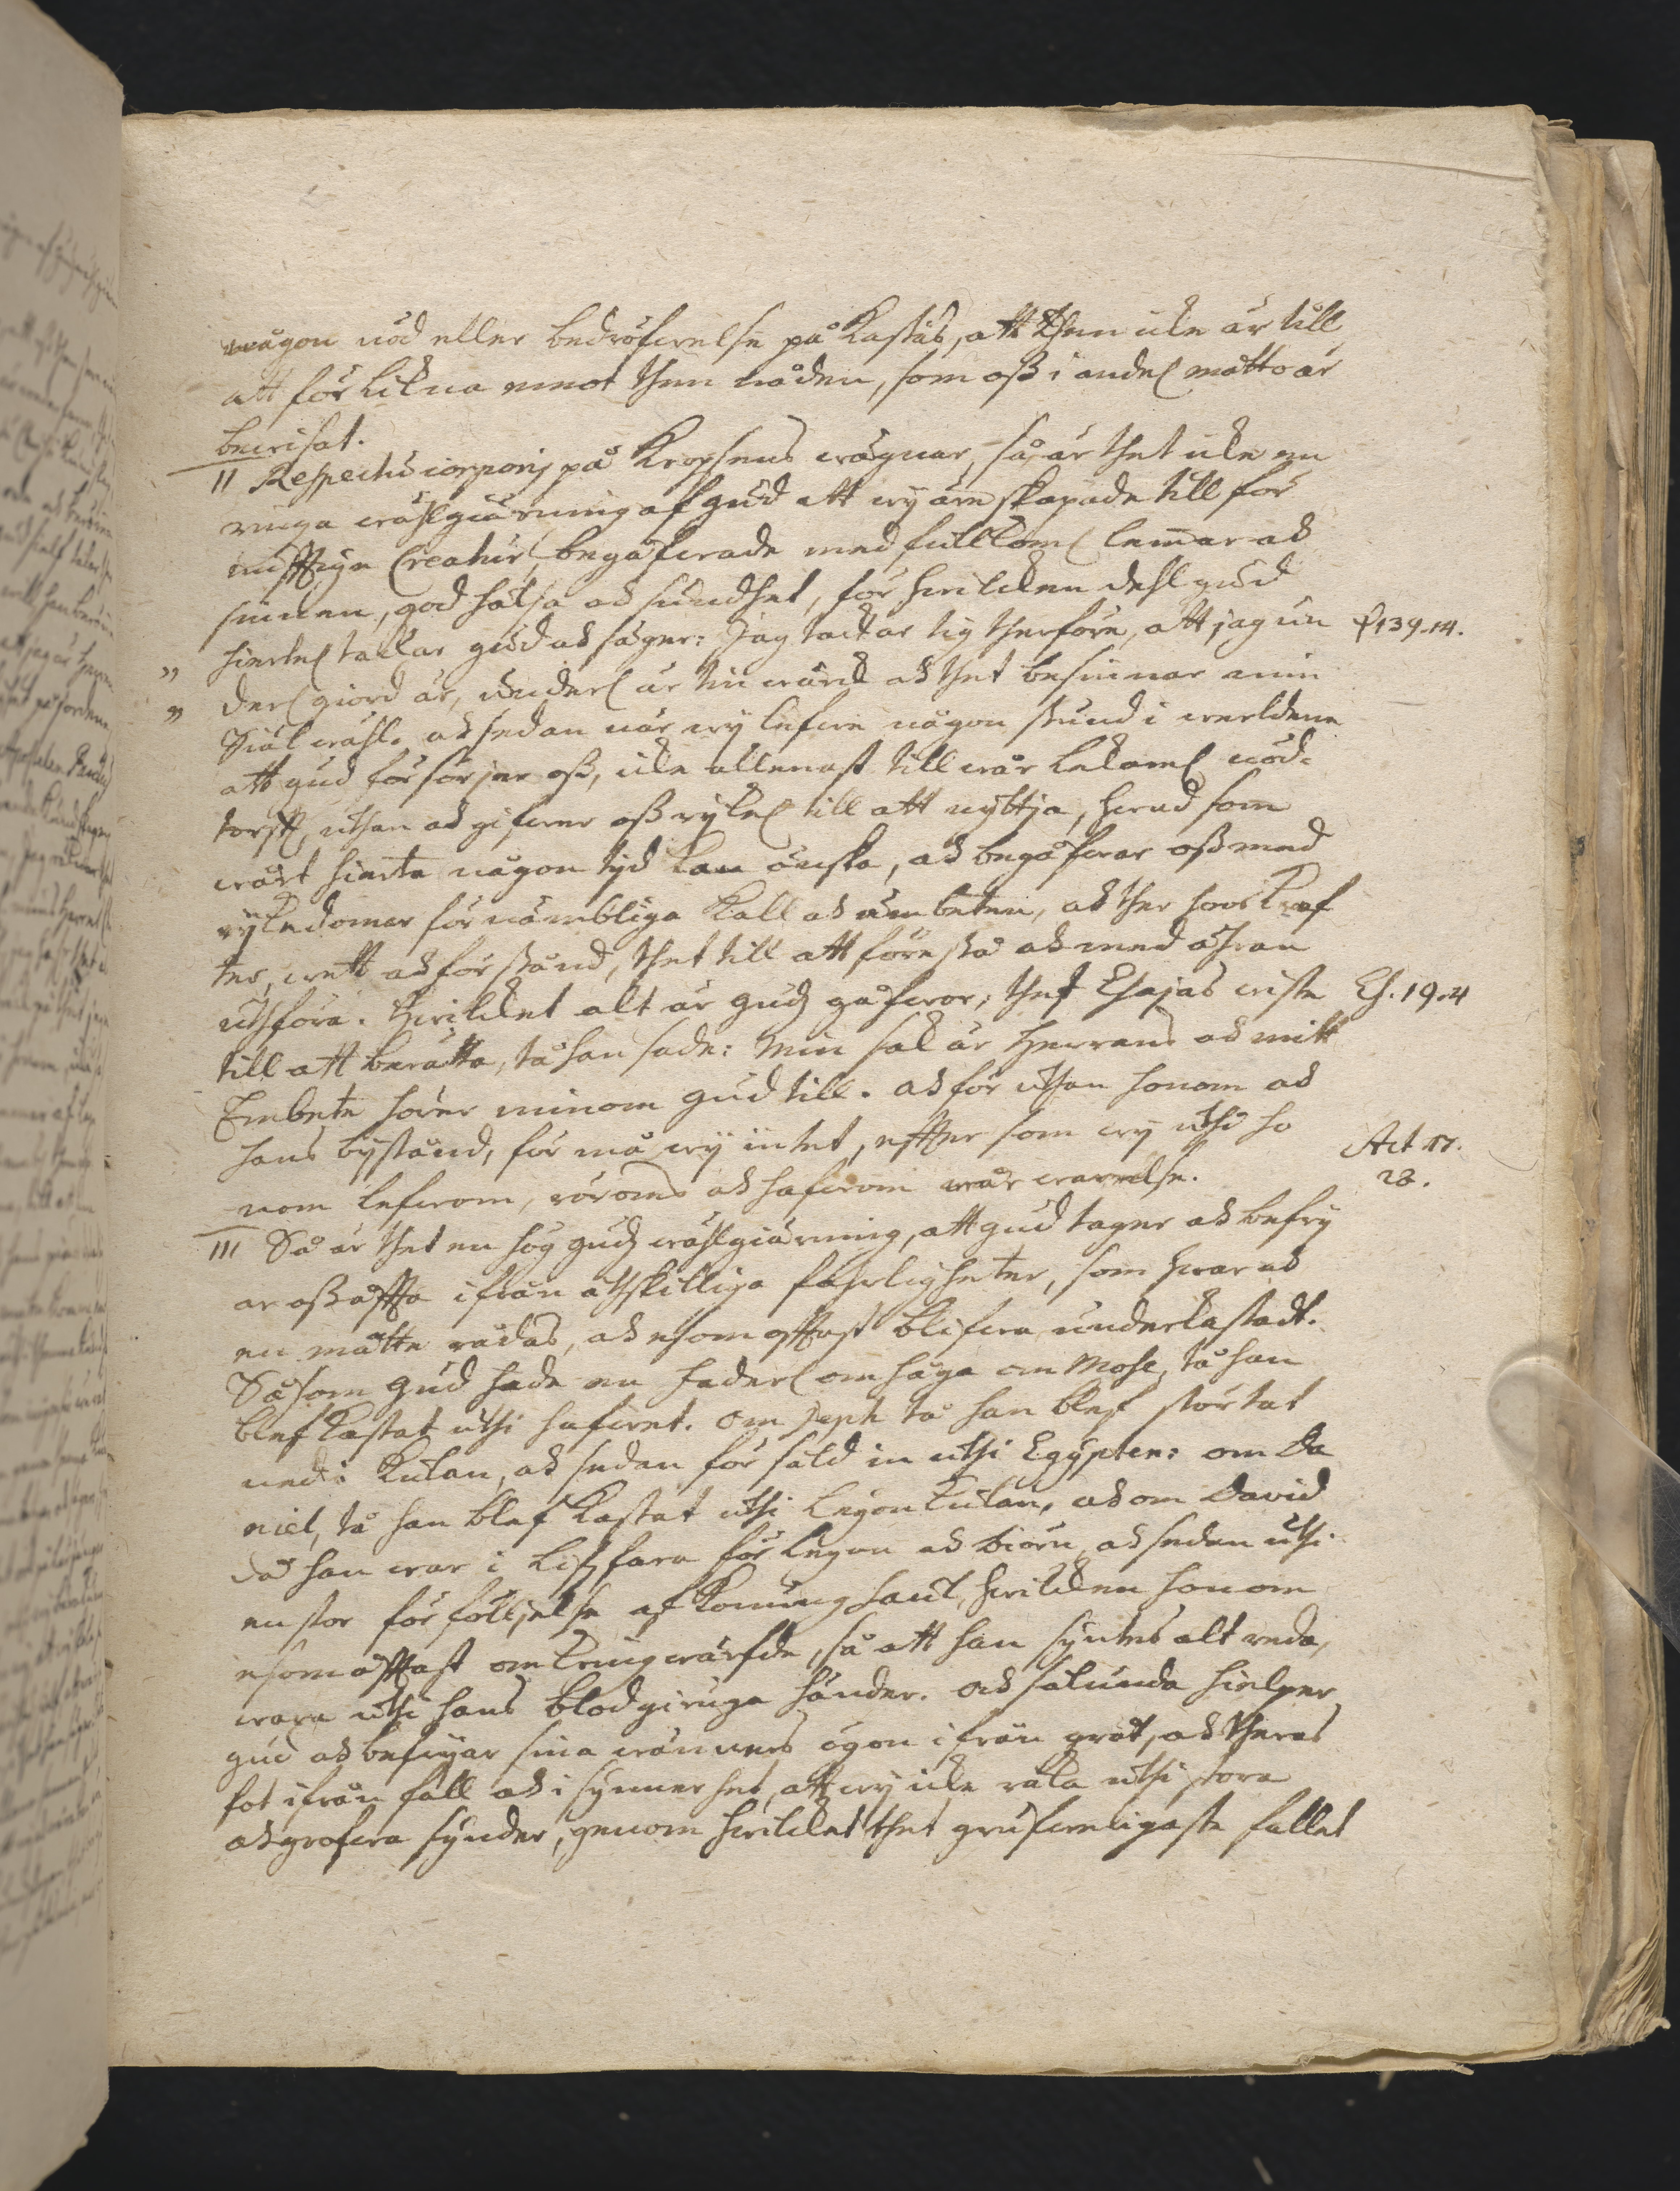 någon nöd eller bedröfwelse på kastas, att then icke är till
att förlikna emot then nåden, som oss i andel måtto är
bewisat.
II Respectu corporis på kropsens wägnar, så är thet icke en
ringa wählgiärning af Gud att wy äre skapade till för
nufftige Creatur, begåfwade med fullkoml lemmar och
sinnen, god hälsa och sundhet, för hwilcken dehl gud
" hiertel tackar gud och säger: Jag tackar tig therföre, att jag un ψ 139.14.
" derl giord är, underl är tin wärck och thet besinnar min
Siäl wähl. och sedan när wy lefwe någon stund i werldene
att gud försörjer oss, icke allenast till wår lekamel nöd-
torfft, uthan och gifwer oss rykel till att nyttja, hwad som
wårt hierta någon tyd kan önska, och begåfwar oss med
rykedomar förnämbliga kall och ämbeten, och ther hoos kraf
ter, wett och förstånd, thet till att förestå och med ähran
uthföra. Hwilcket alt är Gudz gåfwor; thet Esajas wiste Es. 49.4
till att berätta, tå han sade: Min sak är Herrans och mitt
Embete hörer minom Gud till. och för uthan honom och
hans bystånd, förmå wy intet, effter som wy uthi ho
nom lefwom, röroms och hafwom wår warelse. Act 17.
28.
III Så är thet en hög gudz wählgiärning, att gud tager och befry
ar oss offta ifrån åthskilliga fahrligheter, som hwar och
en måtte rädas, och esomofftast blifwa underkastadt.
Såsom Gud hade en faderl omsåga om Mose, tå han
blef kastat uthi hafwet. om Jeph tå han blef störtat
ned i kulan, och sedan försåld in uthi Egypten: om Da
niel, tå han blef kastat uthi Leyonkulan, och om David
då han war i lifzfara för leyon och biörn, och sedan uthi
en stor förföljelse af Konung Saul, hwilcken honom
esomofftast omkringwärfde, så att han syntes alt reda,
wara uthi hans blodgiruga händer. och sålunda hielper
gud och befryar sina wänners ögon ifrån gråt, och theras
fot ifrån fall och i synnerhet, att wy icke råka uthi stora
och grofwa synder, genom hwilcket thet grufweligaste fallet